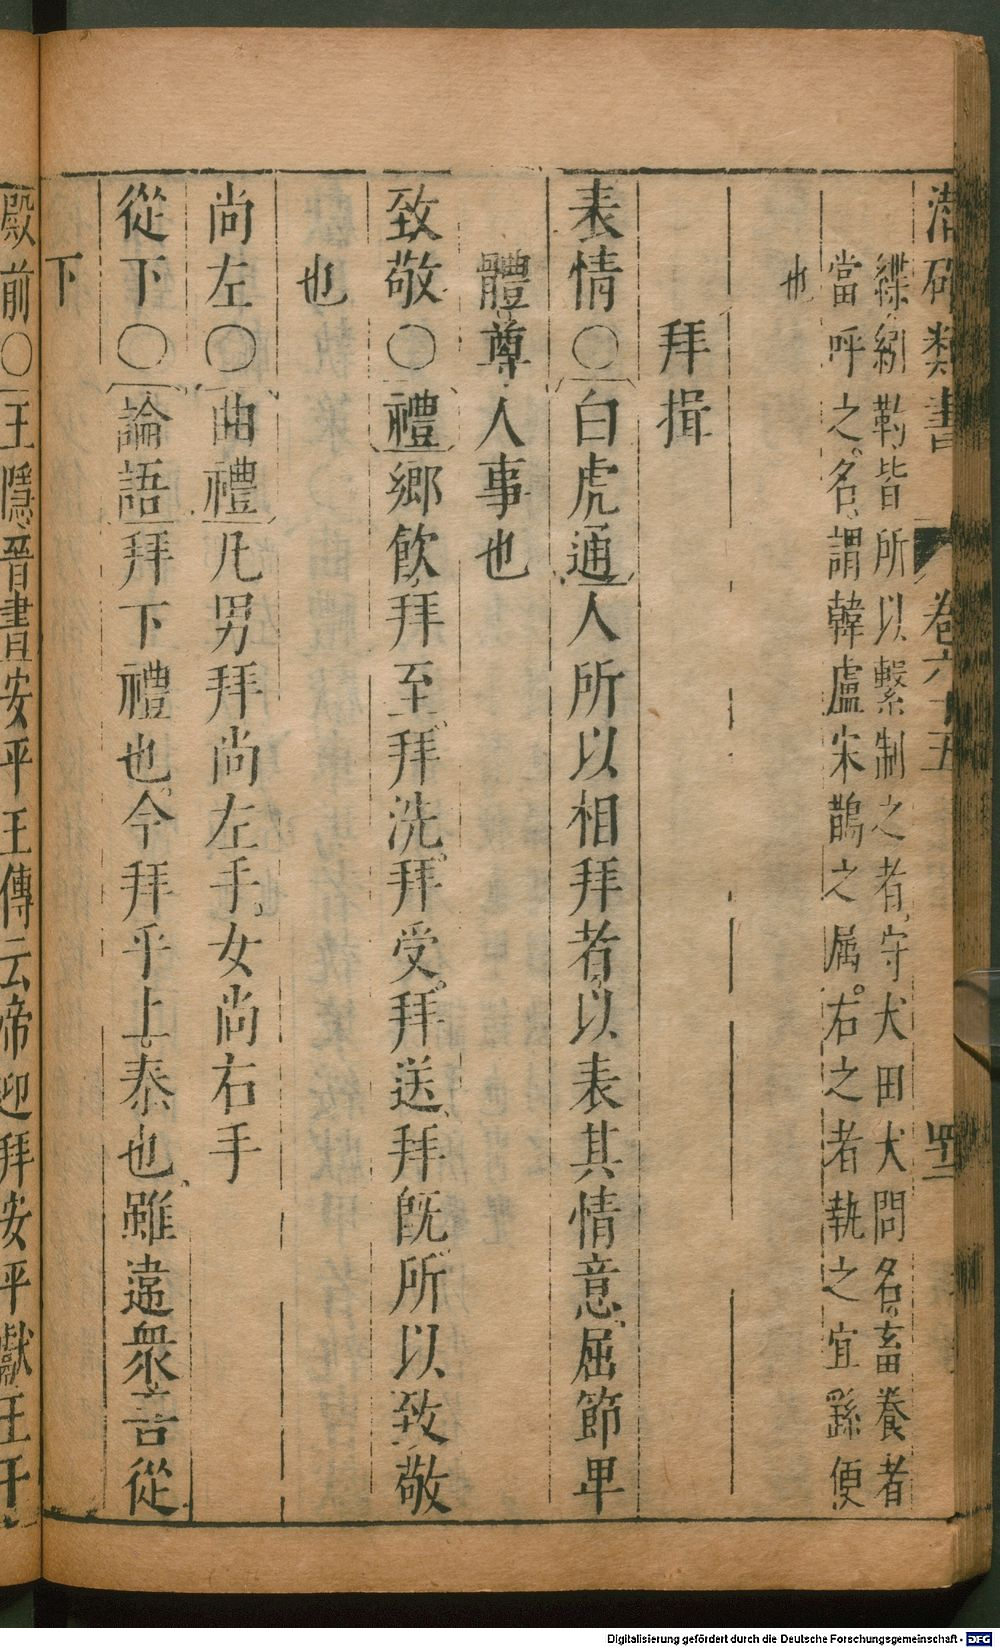 潛確類書 卷六十五 四十二
緤紖靮皆所以繫制之者守犬田犬問名畜養者
當呼之名謂韓盧宋鵲之屬右之者執之宜繇便
也
拜揖
表情〇白虎通人所以相拜者以表其情意屈節卑
體尊人事也
致敬〇禮鄉飲拜至拜洗拜受拜送拜旣所以致敬
也
尚左〇曲禮凡男拜尚左手女尚右手
從下〇論語拜下禮也今拜乎上泰也雖違衆吾從
下
殿前〇王隱晉書安平王傳云帝迎拜安平獻王于
Digitalisierung gefördert durch die Deutsche Forschungsgemeinschaft - DFG